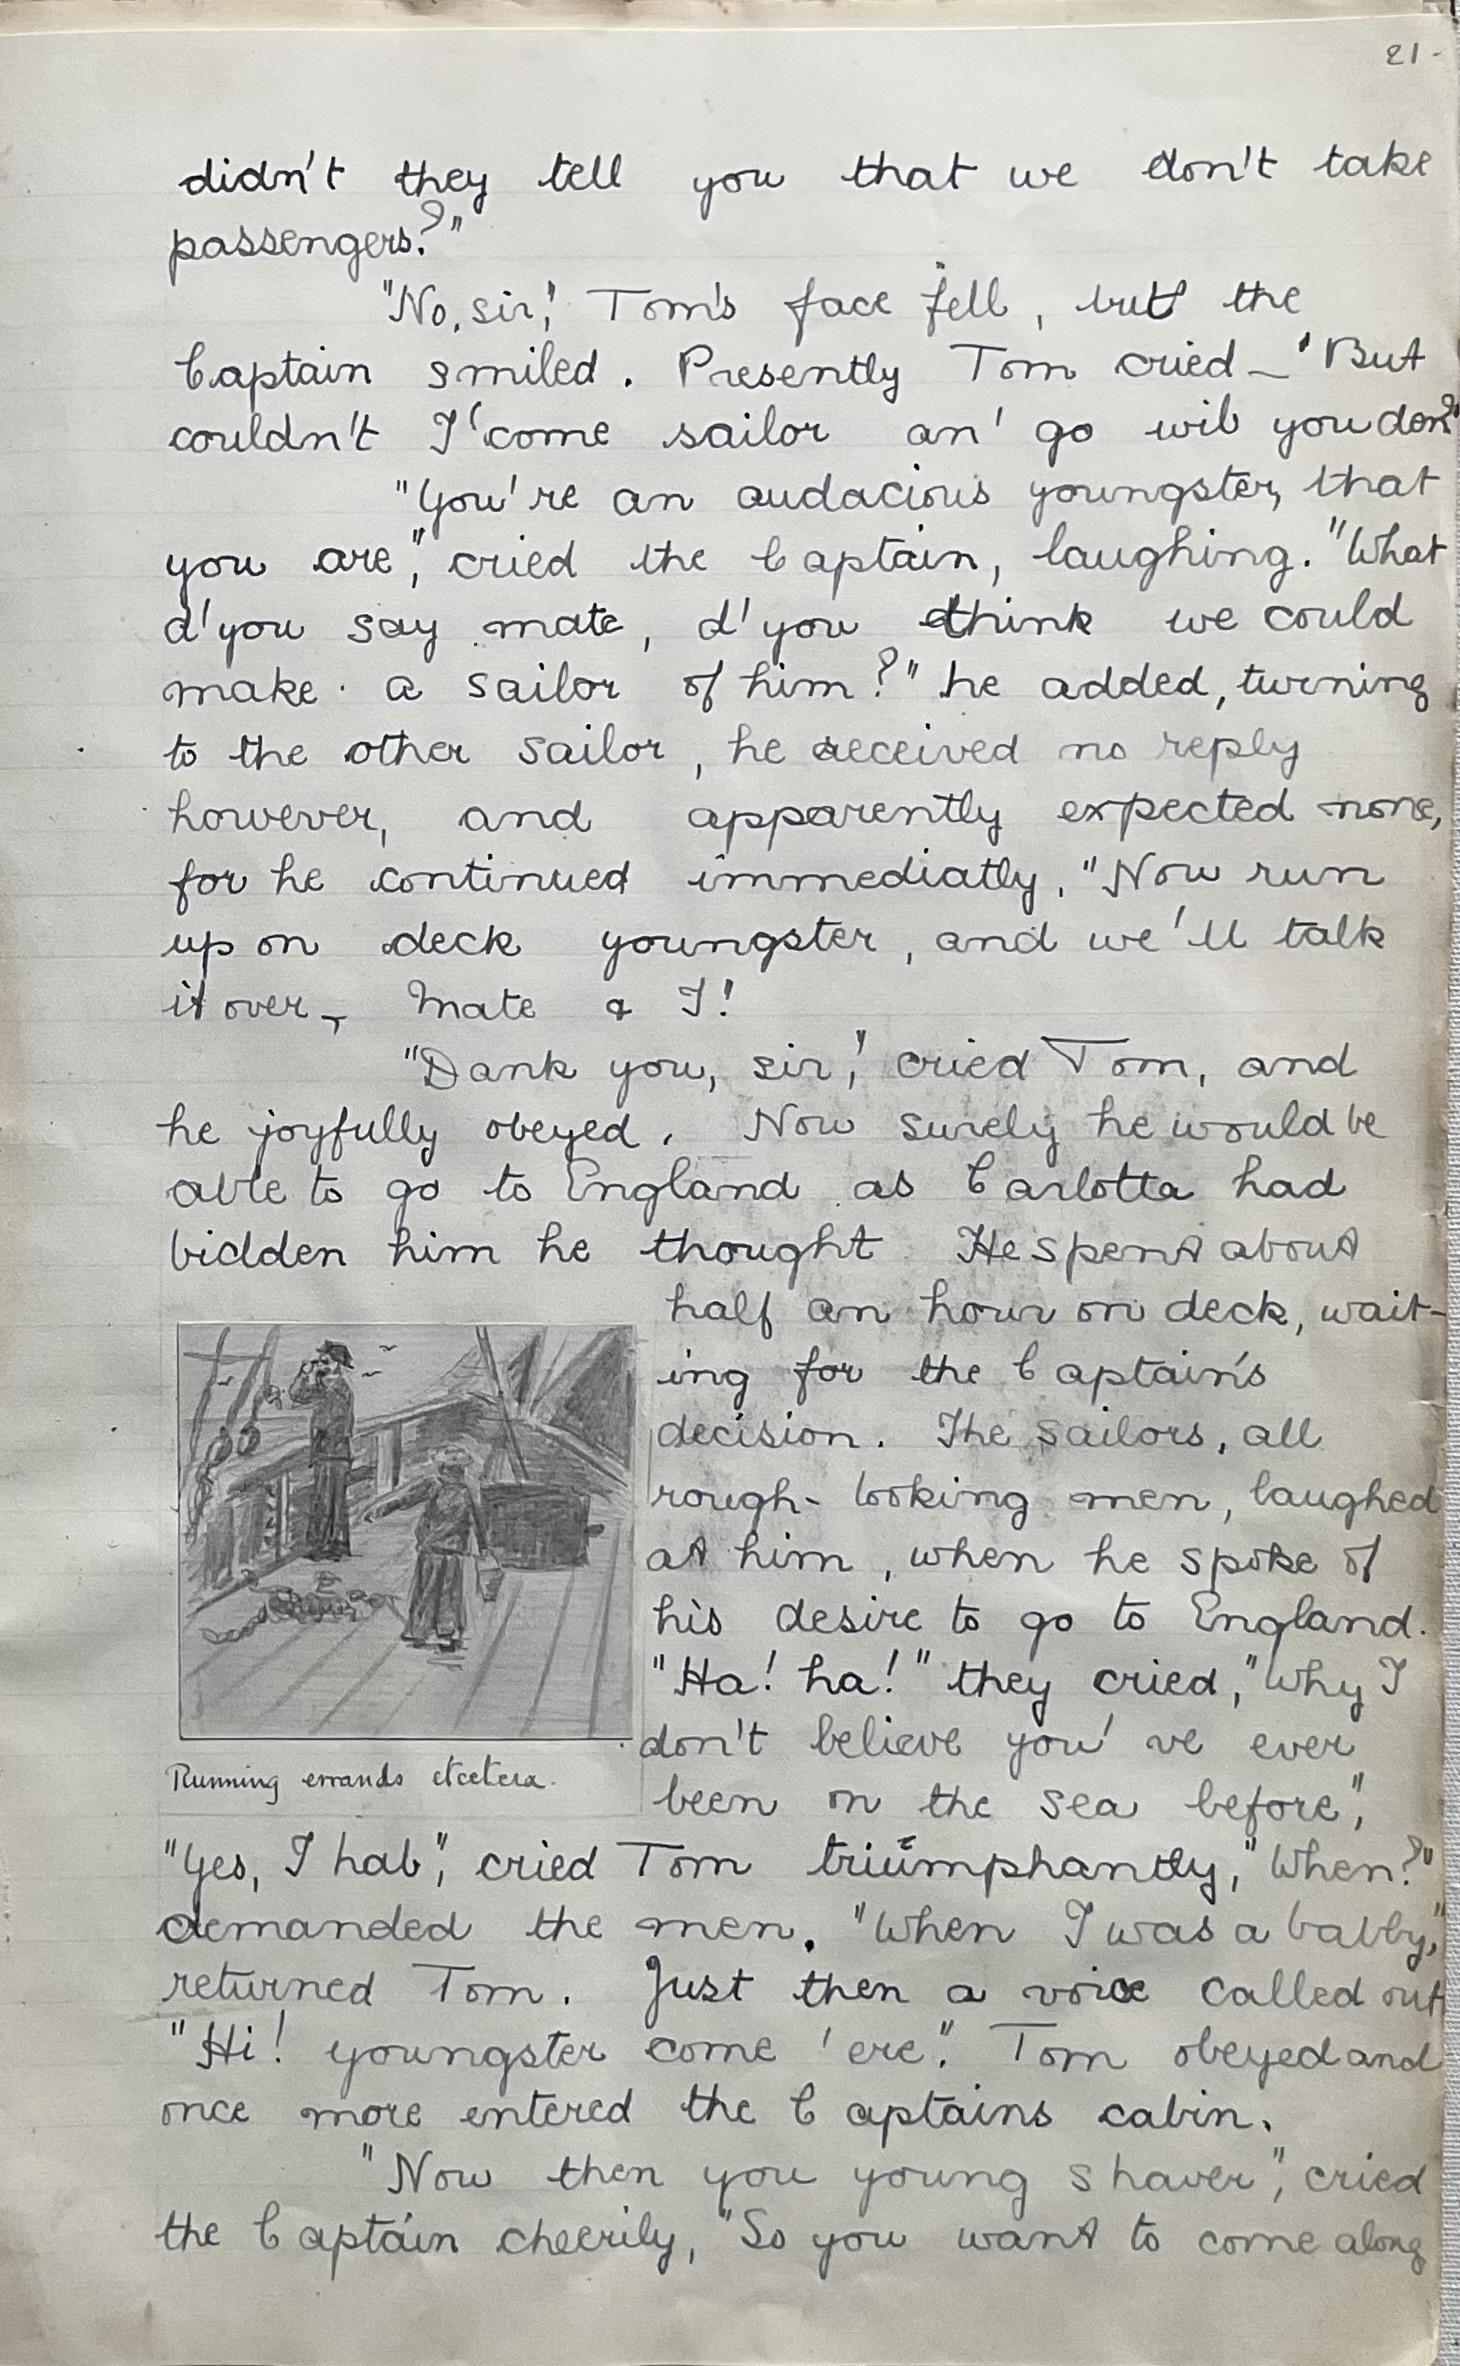 21-
didn't they tell you that we don't take
passengers?"
"No, sir", Tom's face fell, but the
Captain smiled. Presently Tom cried - "But
couldn't I 'come sailor an' go wib you den?"
"You're an audacious youngster, that
you are", cried the Captain, laughing. "What
d'you say mate, d'you think we could
make a sailor of him?" he added, turning
to the other sailor, he received no reply
however, and apparently expected none,
for he continued immediatly, "Now run
up on deck youngster, and we'll talk
it over, - Mate & I!
"Dank you, sir", cried Tom, and
he joyfully obeyed. Now surely he would be
able to go to England as Carlotta had
bidden him he thought He spent about
half an hour on deck, wait-
ing for the Captain's
decision. The sailors, all
rough-looking men, laughed
at him, when he spoke of
his desire to go to England.
"Ha! ha!" they cried, "Why I
don't believe you've ever
been on the sea before",
Running errands etcetera.
"Yes, I hab", cried Tom triumphantly, "When?"
demanded the men. "When I was a babby,"
returned Tom. Just then a voice called out
"Hi! youngster come 'ere". Tom obeyed and
once more entered the Captains cabin.
"Now then you young shaver", cried
the Captain cheerily, "So you want to come along